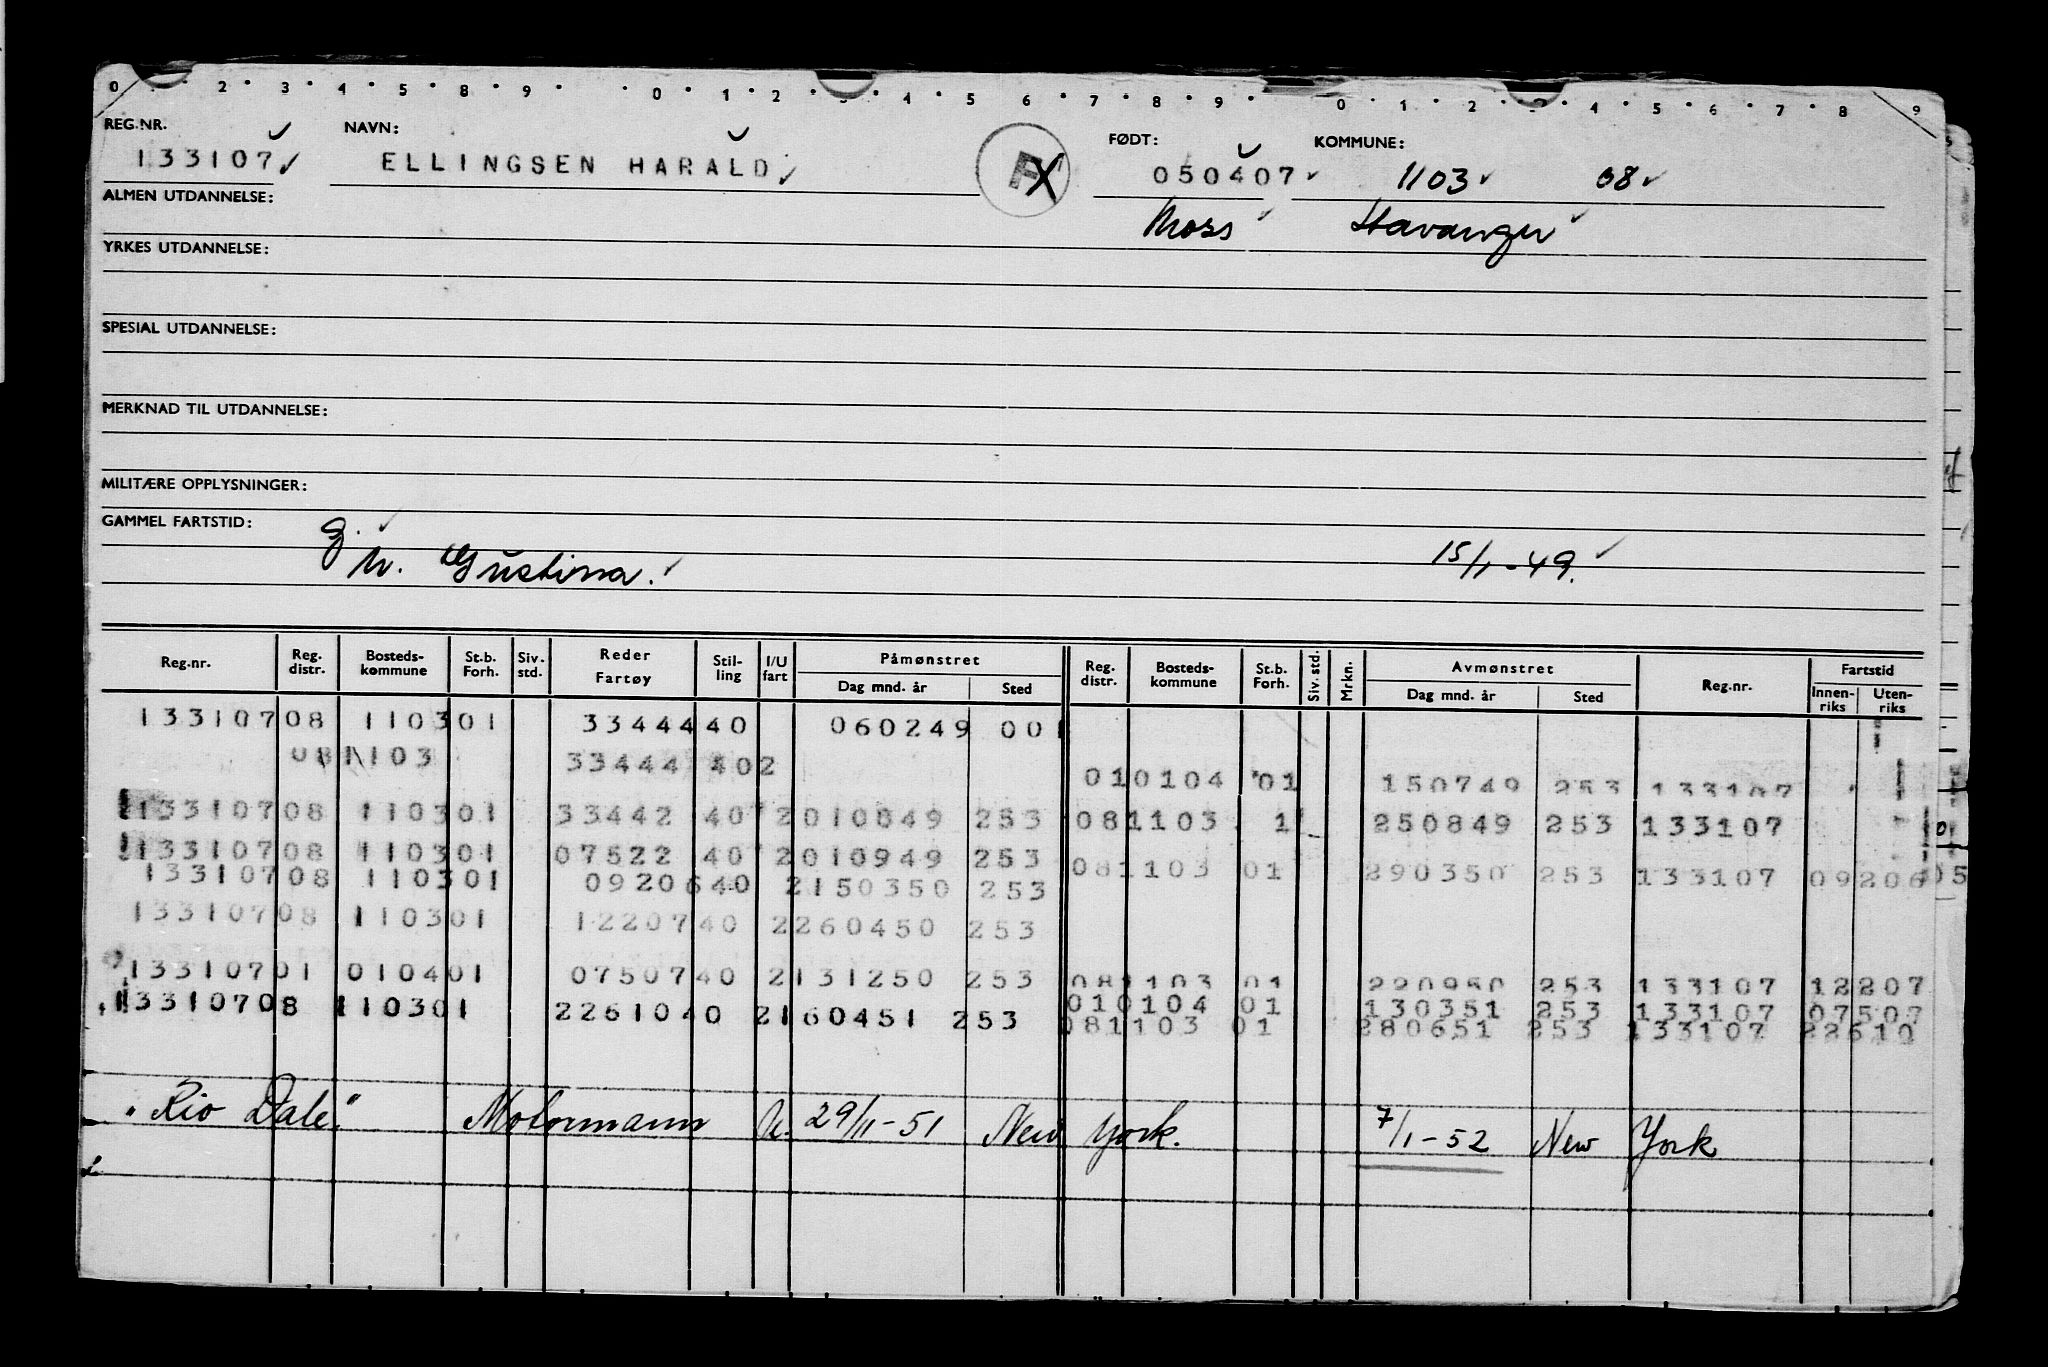 0 2 3 4 5 8 9 0 1 2 3 4 5 6 7 8 9 0 1 2 3 4 5 6 7 8 9
REG.NR. NAVN: FØDT: KOMMUNE:
133107 ELLINGSEN HARALD 050407 1103 08
Moss Stavanger
ALMEN UTDANNELSE:
YRKES UTDANNELSE:
SPESIAL UTDANNELSE:
MERKNAD TIL UTDANNELSE:
MILITÆRE OPPLYSNINGER:
GAMMEL FARTSTID:
M. Gustina. 15/1-49.
Reg.nr. Reg. distr. Bosteds- kommune St.b. Forh. Siv. std. Reder Fartøy Stil- ling I/U fart Påmønstret Dag mnd. år Sted Reg. distr. Bosteds- kommune St.b. Forh. Siv. std. Mrkn. Avmønstret Dag mnd. år Sted Reg.nr. Fartstid Innen- riks Uten- riks
133107 08 1103 01 33444 40 060249 001
08 1103 33444 40 2
01 0104 01 150749 253 133107
133107 08 1103 01 33442 40 2 010849 253 08 1103 1 250849 253 133107
133107 08 1103 01 07522 40 2 010949 253
08 1103 01 290350 253 133107 09206
133107 08 1103 01 09206 40 2 150350 253
133107 08 1103 01 12207 40 2 260450 253
133107 01 0104 01 07507 40 2 131250 253 08 1103 01 220950 253 133107 12207
133107 08 1103 01 22610 40 2 160451 253 01 0104 01 130351 253 133107 07507
08 1103 01 280651 253 133107 22610
"Rio Dale" Motormann U. 29/11-51 New York. 7/1-52 New York